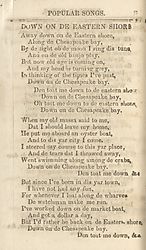 POPULAR SONGS.
DOWN ON DE EASTERN SHORE
Away down on de Eastern shore,
Along de Chesapeake bay,
By de light ob de moon I sing dis tune,
And on de old banjo play.
But now old age is coming on,
And my head is turning grey,
In thinking of the times I've past,
Down on de Chesapeake bay.
Den tout me down to de eastern shore
Down on de Chesapeake bay,
Oh tout me down to de eastern shore,
Down on de Chesapeake bay.
When my old massa said to me,
Dat I should leave my home,
He put me aboard an oyster boat,
And to dis yar city I come.
I steered my course to this yar place,
And de tears dat I showed away,
Went swimming along among de crabs,
Down on de Chesapeake bay.
Den tout me down &c
But since I've been in dis yar town,
I have not had any fun,
For whenever I loaf along de wharves
De watchman make me run.
I've worked down on de market boat,
And got a dollar a day,
But I'd rather be back on de Eastern shore,
Down on de Chesapeake bay.
Den tout me down, &c